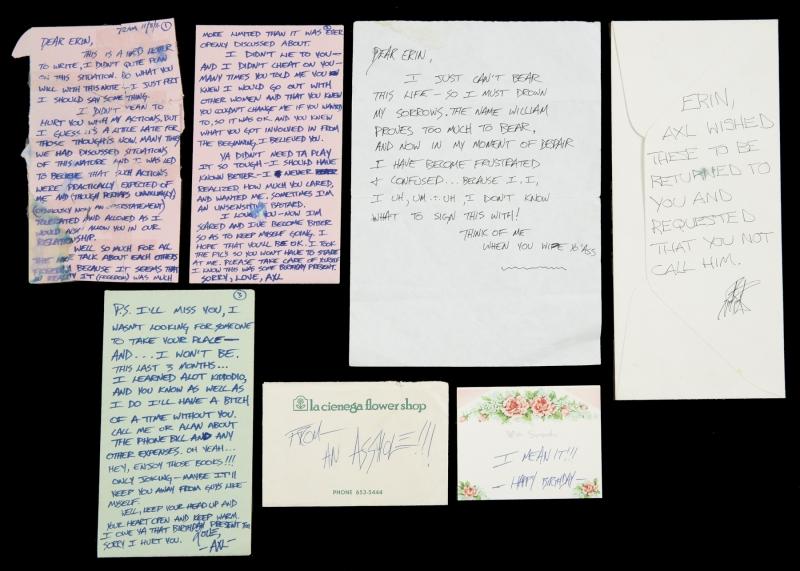 7:20AM 11/8/86 1
DEAR ERIN,
THIS IS A HARD LETTER
TO WRITE, I DIDN'T QUITE PLAN
ON THIS SITUATION. DO WHAT YOU
WILL WITH THIS NOTE—I JUST FELT
I SHOULD SAY SOMETHING.
I DIDN'T MEAN TO
HURT YOU WITH MY ACTIONS, BUT
I GUESS IT'S A LITTLE LATE FOR
THOSE THOUGHTS NOW. MANY TIMES
WE HAD DISCUSSED SITUATIONS
OF THIS NATURE AND I WAS LED
TO BELIEVE THAT SUCH ACTIONS
WERE PRACTICALLY EXPECTED OF
ME AND (THOUGH PERHAPS UNWILLINGLY)
(OBVIOUSLY NOW AN UNDERSTATEMENT)
TOLERATED AND ALLOWED AS I
WOULD ALSO ALLOW YOU IN OUR
RELATIONSHIP.
WELL SO MUCH FOR ALL
THAT TALK ABOUT EACH OTHERS
FREEDOM BECAUSE IT SEEMS THAT
IN REALITY IT (FREEDOM) WAS MUCH
MORE LIMITED THAN IT WAS EVER
OPENLY DISCUSSED ABOUT.
I DIDN'T LIE TO YOU—
AND I DIDN'T CHEAT ON YOU—
MANY TIMES YOU TOLD ME YOU
KNEW I WOULD GO OUT WITH
OTHER WOMEN AND THAT YOU KNEW
YOU COULDN'T CHANGE ME IF YOU WANTED
TO, SO IT WAS OK. AND YOU KNEW
WHAT YOU GOT INVOLVED IN FROM
THE BEGINNING, I BELIEVED YOU.
YA DIDN'T NEED TA PLAY
IT SO TOUGH—I SHOULD HAVE
KNOWN BETTER—I NEVER
REALIZED HOW MUCH YOU CARED,
AND WANTED ME, SOMETIMES I'M
AN UNSENSITIVE BASTARD.
I LOVE YOU—NOW I'M
SCARED AND I'VE BECOME BITTER
SO AS TO KEEP MYSELF GOING. I
HOPE THAT YOU'LL BE OK. I TOOK
THE PIC'S SO YOU WON'T HAVE TO STARE
AT ME. PLEASE TAKE CARE OF YOURSELF
I KNOW THIS WAS SOME BIRTHDAY PRESENT.
SORRY, LOVE, AXL
3
P.S. I'LL MISS YOU, I
WASN'T LOOKING FOR SOMEONE
TO TAKE YOUR PLACE—
AND... I WON'T BE.
THIS LAST 3 MONTHS...
I LEARNED ALOT KIDDODIO,
AND YOU KNOW AS WELL AS
I DO I'LL HAVE A BITCH
OF A TIME WITHOUT YOU.
CALL ME OR ALAN ABOUT
THE PHONE BILL AND ANY
OTHER EXPENSES. OH YEAH...
HEY, ENJOY THOSE BOOKS!!!
ONLY JOKING—MAYBE IT'LL
KEEP YOU AWAY FROM GUYS LIKE
MYSELF.
WELL, KEEP YOUR HEAD UP AND
YOUR HEART OPEN AND KEEP WARM.
I OWE YA THAT BIRTHDAY PRESENT TOO
SORRY I HURT YOU. LOVE,
—AXL—
DEAR ERIN,
I JUST CAN'T BEAR
THIS LIFE—SO I MUST DROWN
MY SORROWS. THE NAME WILLIAM
PROVES TOO MUCH TO BEAR,
AND NOW IN MY MOMENT OF DESPAIR
I HAVE BECOME FRUSTRATED
& CONFUSED... BECAUSE I, I,
I UH, UM... UH I DON'T KNOW
WHAT TO SIGN THIS WITH!
THINK OF ME
WHEN YOU WIPE YO' ASS
ERIN,
AXL WISHED
THESE TO BE
RETURNED TO
YOU AND
REQUESTED
THAT YOU NOT
CALL HIM.
la cienega flower shop
FROM
AN ASSHOLE!!!
PHONE 653-5444
With Sympathy
I MEAN IT!!!
—HAPPY BIRTHDAY—